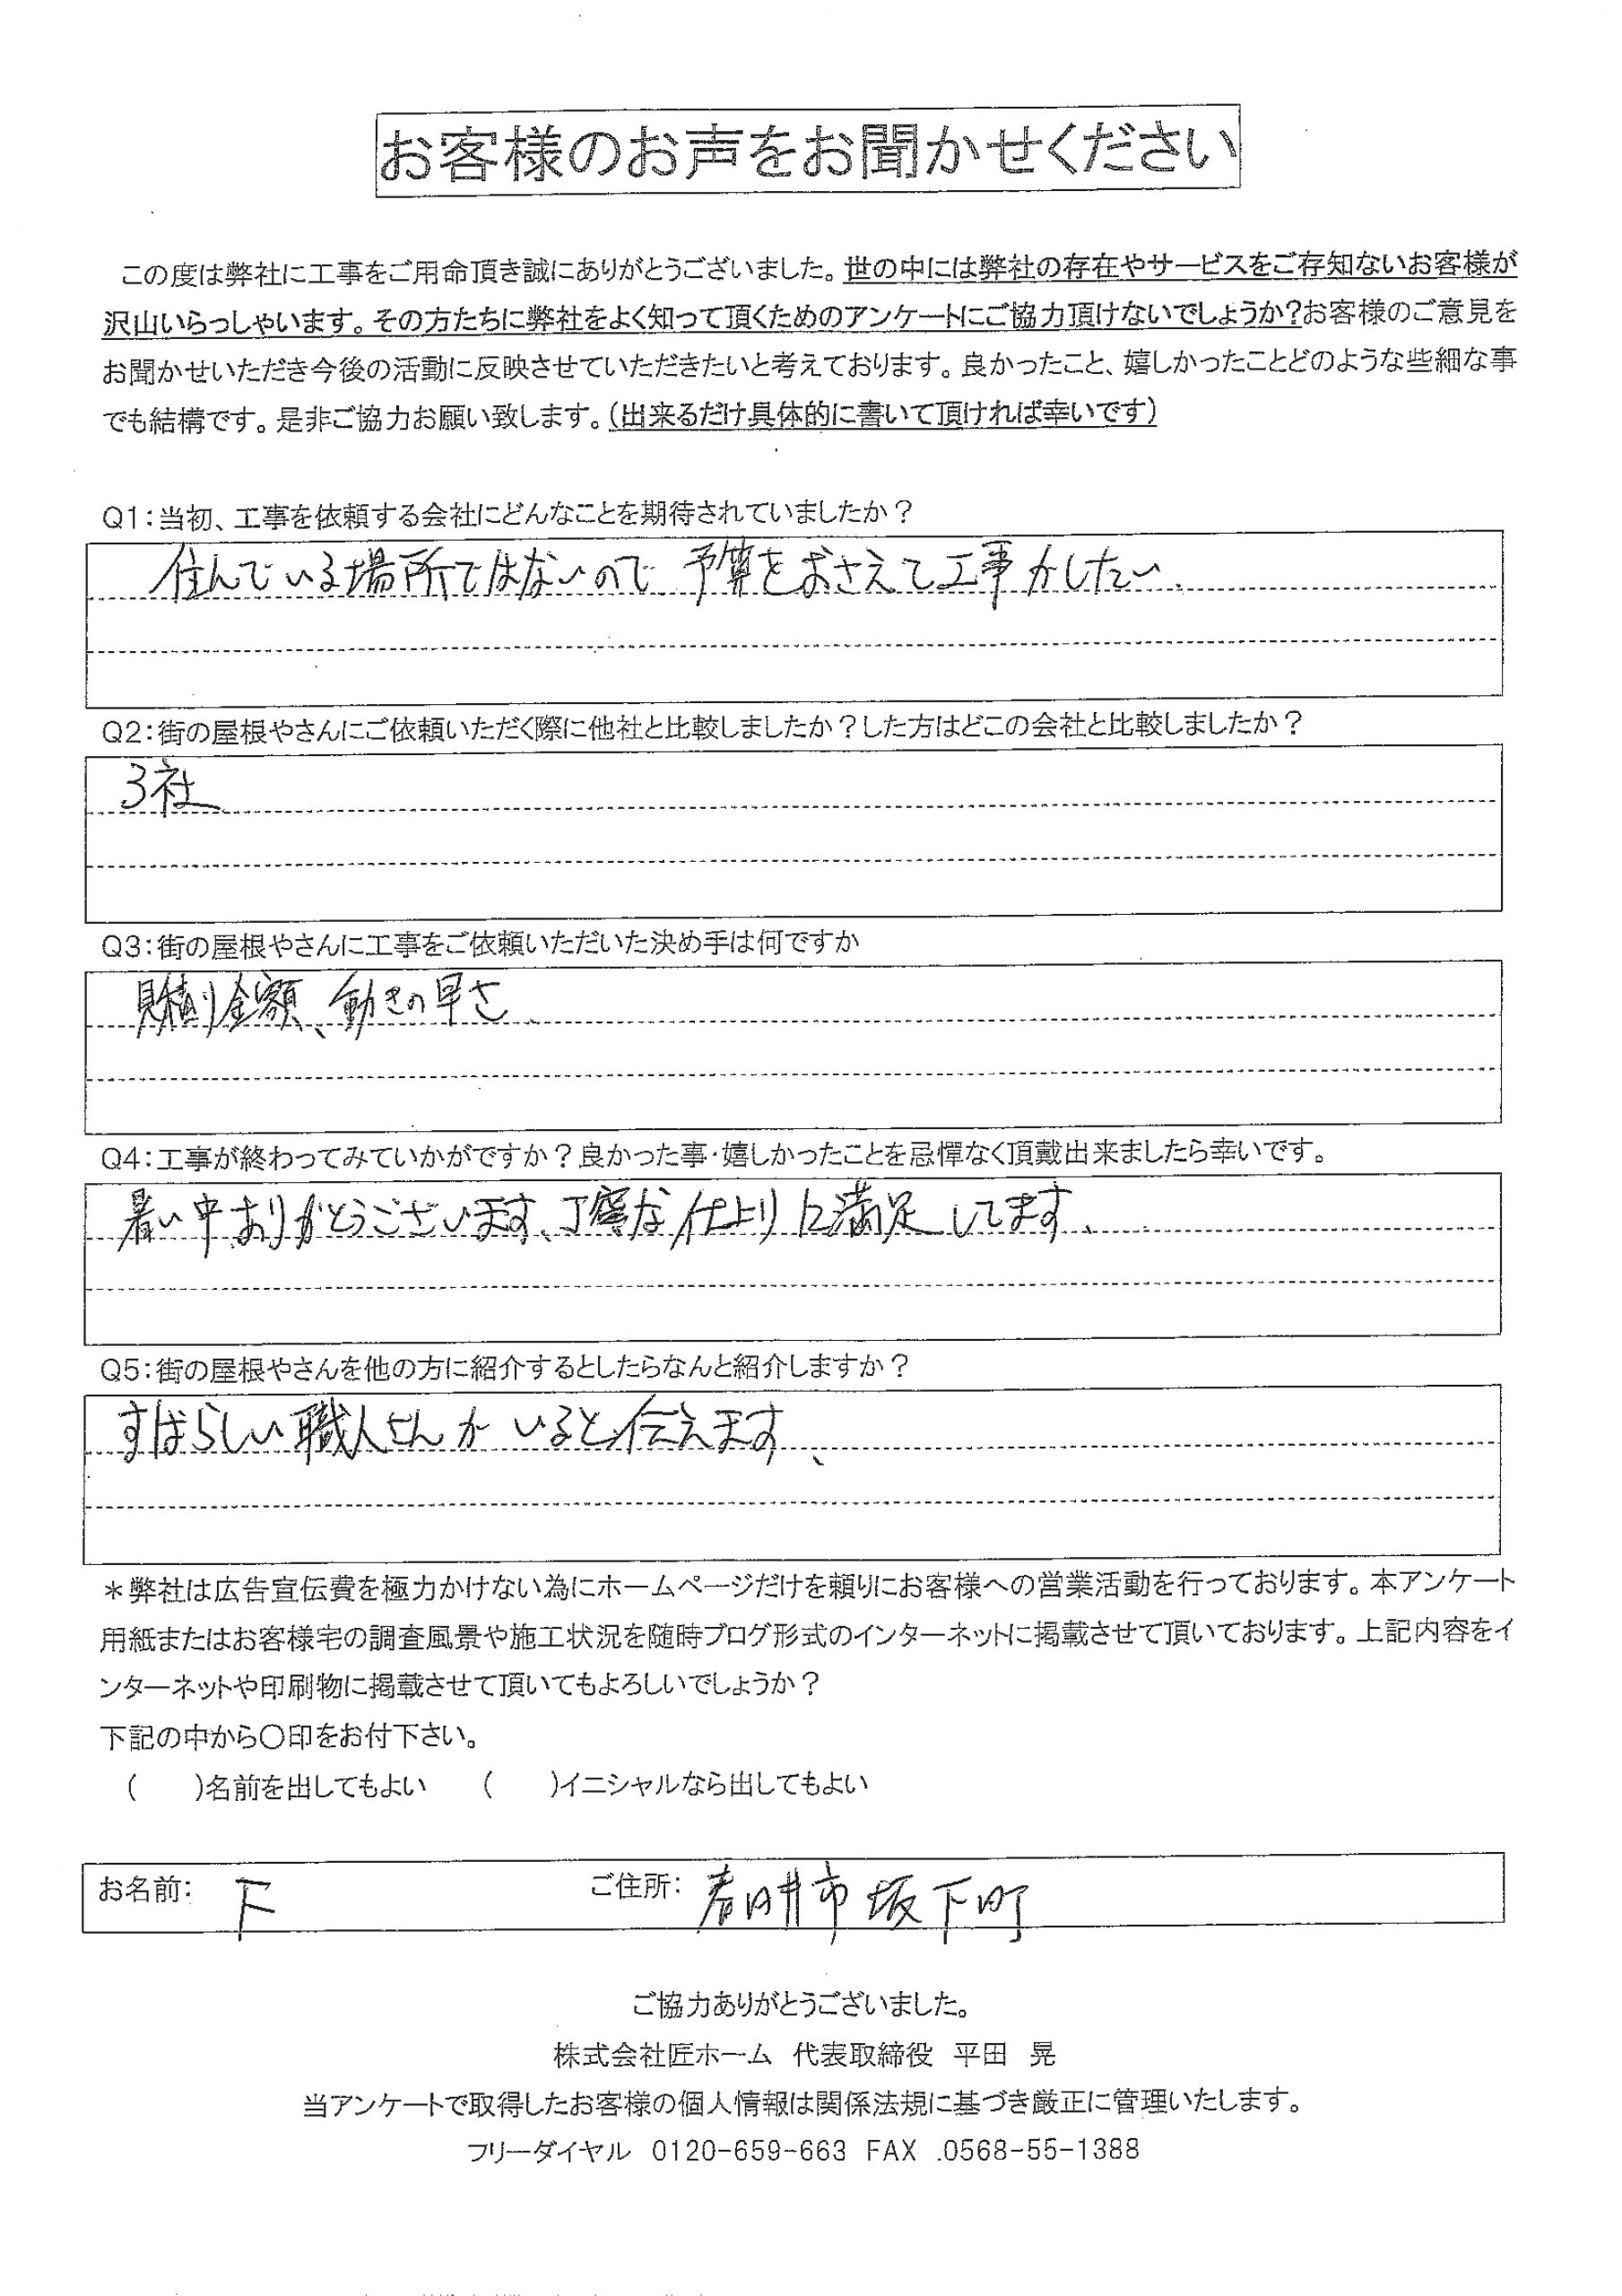 お客様のお声をお聞かせください
この度は弊社に工事をご用命頂き誠にありがとうございました。世の中には弊社の存在やサービスをご存知ないお客様が
沢山いらっしゃいます。その方たちに弊社をよく知って頂くためのアンケートにご協力頂けないでしょうか?お客様のご意見を
お聞かせいただき今後の活動に反映させていただきたいと考えております。良かったこと、嬉しかったことどのような些細な事
でも結構です。是非ご協力お願い致します。(出来るだけ具体的に書いて頂ければ幸いです)
Q1:当初、工事を依頼する会社にどんなことを期待されていましたか?
住んでいる場所ではないので予算をおさえて工事がしたい.
Q2:街の屋根やさんにご依頼いただく際に他社と比較しましたか?した方はどこの会社と比較しましたか?
3社
Q3:街の屋根やさんに工事をご依頼いただいた決め手は何ですか
見積り金額、動きの早さ
Q4:工事が終わってみていかがですか?良かった事・嬉しかったことを忌憚なく頂戴出来ましたら幸いです。
暑い中ありがとうございます、丁寧な仕上りに満足してます、
Q5:街の屋根やさんを他の方に紹介するとしたらなんと紹介しますか?
すばらしい職人さんがいると伝えます、
*弊社は広告宣伝費を極力かけない為にホームページだけを頼りにお客様への営業活動を行っております。本アンケート
用紙またはお客様宅の調査風景や施工状況を随時ブログ形式のインターネットに掲載させて頂いております。上記内容をイ
ンターネットや印刷物に掲載させて頂いてもよろしいでしょうか?
下記の中から〇印をお付下さい。
( )名前を出してもよい ( )イニシャルなら出してもよい
お名前: F ご住所: 春日井市坂下町
ご協力ありがとうございました。
株式会社匠ホーム 代表取締役 平田 晃
当アンケートで取得したお客様の個人情報は関係法規に基づき厳正に管理いたします。
フリーダイヤル 0120-659-663 FAX .0568-55-1388